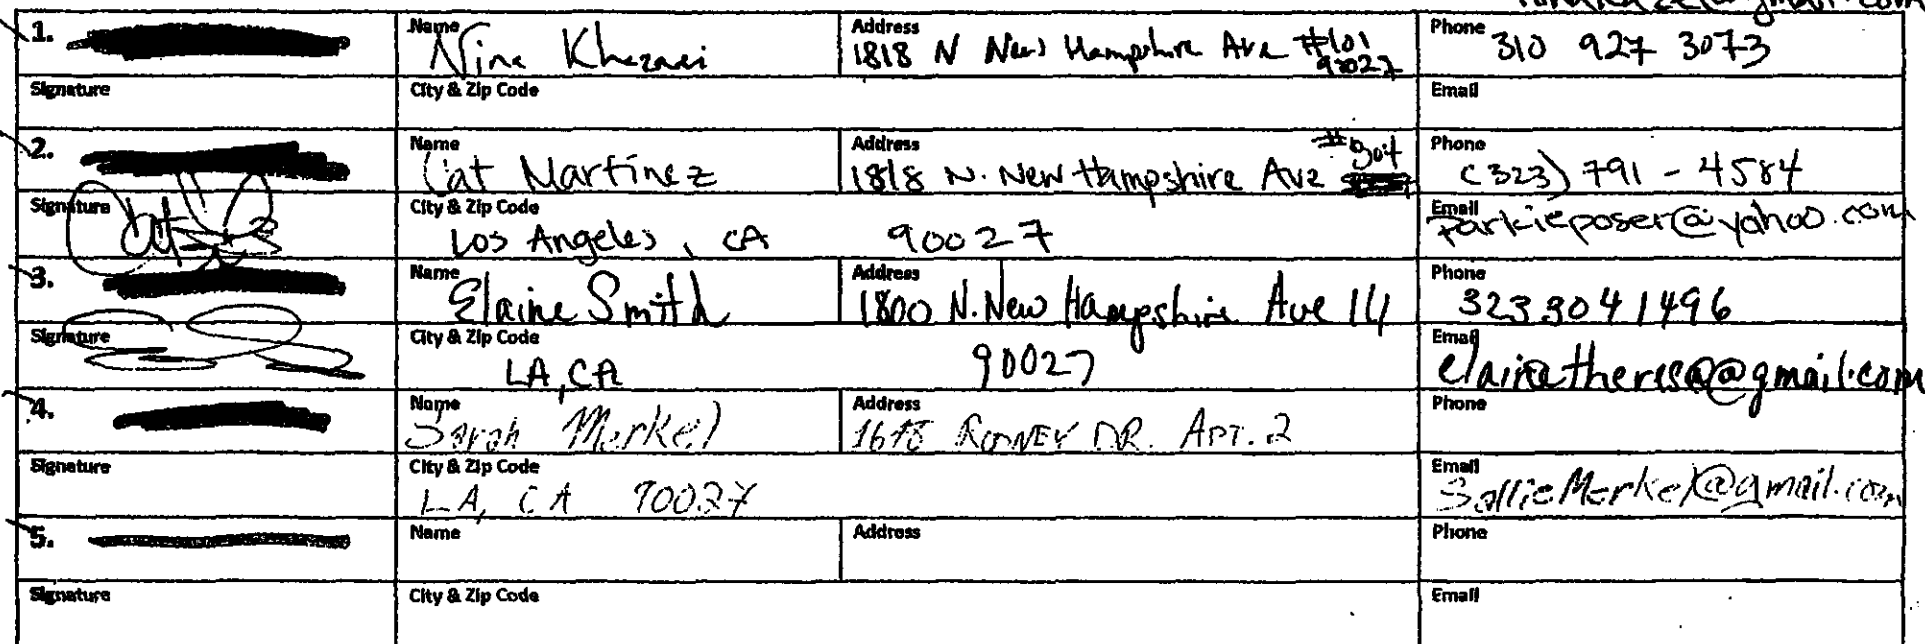 1. Name Nina Khazaei Address 1818 N New Hampshire Ave #101 90027 Phone 310 927 3073
Signature City & Zip Code Email
2. Name Cat Martinez Address 1818 N. New Hampshire Ave Phone (323) 791-4584
Signature City & Zip Code Los Angeles, CA 90027 Email parkieposer@yahoo.com
3. Name Elaine Smith Address 1800 N. New Hampshire Ave 111 Phone 323 304 1496
Signature City & Zip Code LA, CA 90027 Email elainetheresa@gmail.com
4. Name Sarah Merkel Address RODNEY DR. APT. 2 Phone
Signature City & Zip Code LA, CA 90027 Email SallieMerkel@gmail.com
5. Name Address Phone
Signature City & Zip Code Email